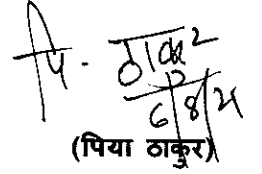 पि. ठाकुर
6/8/21
(पिया ठाकुर)